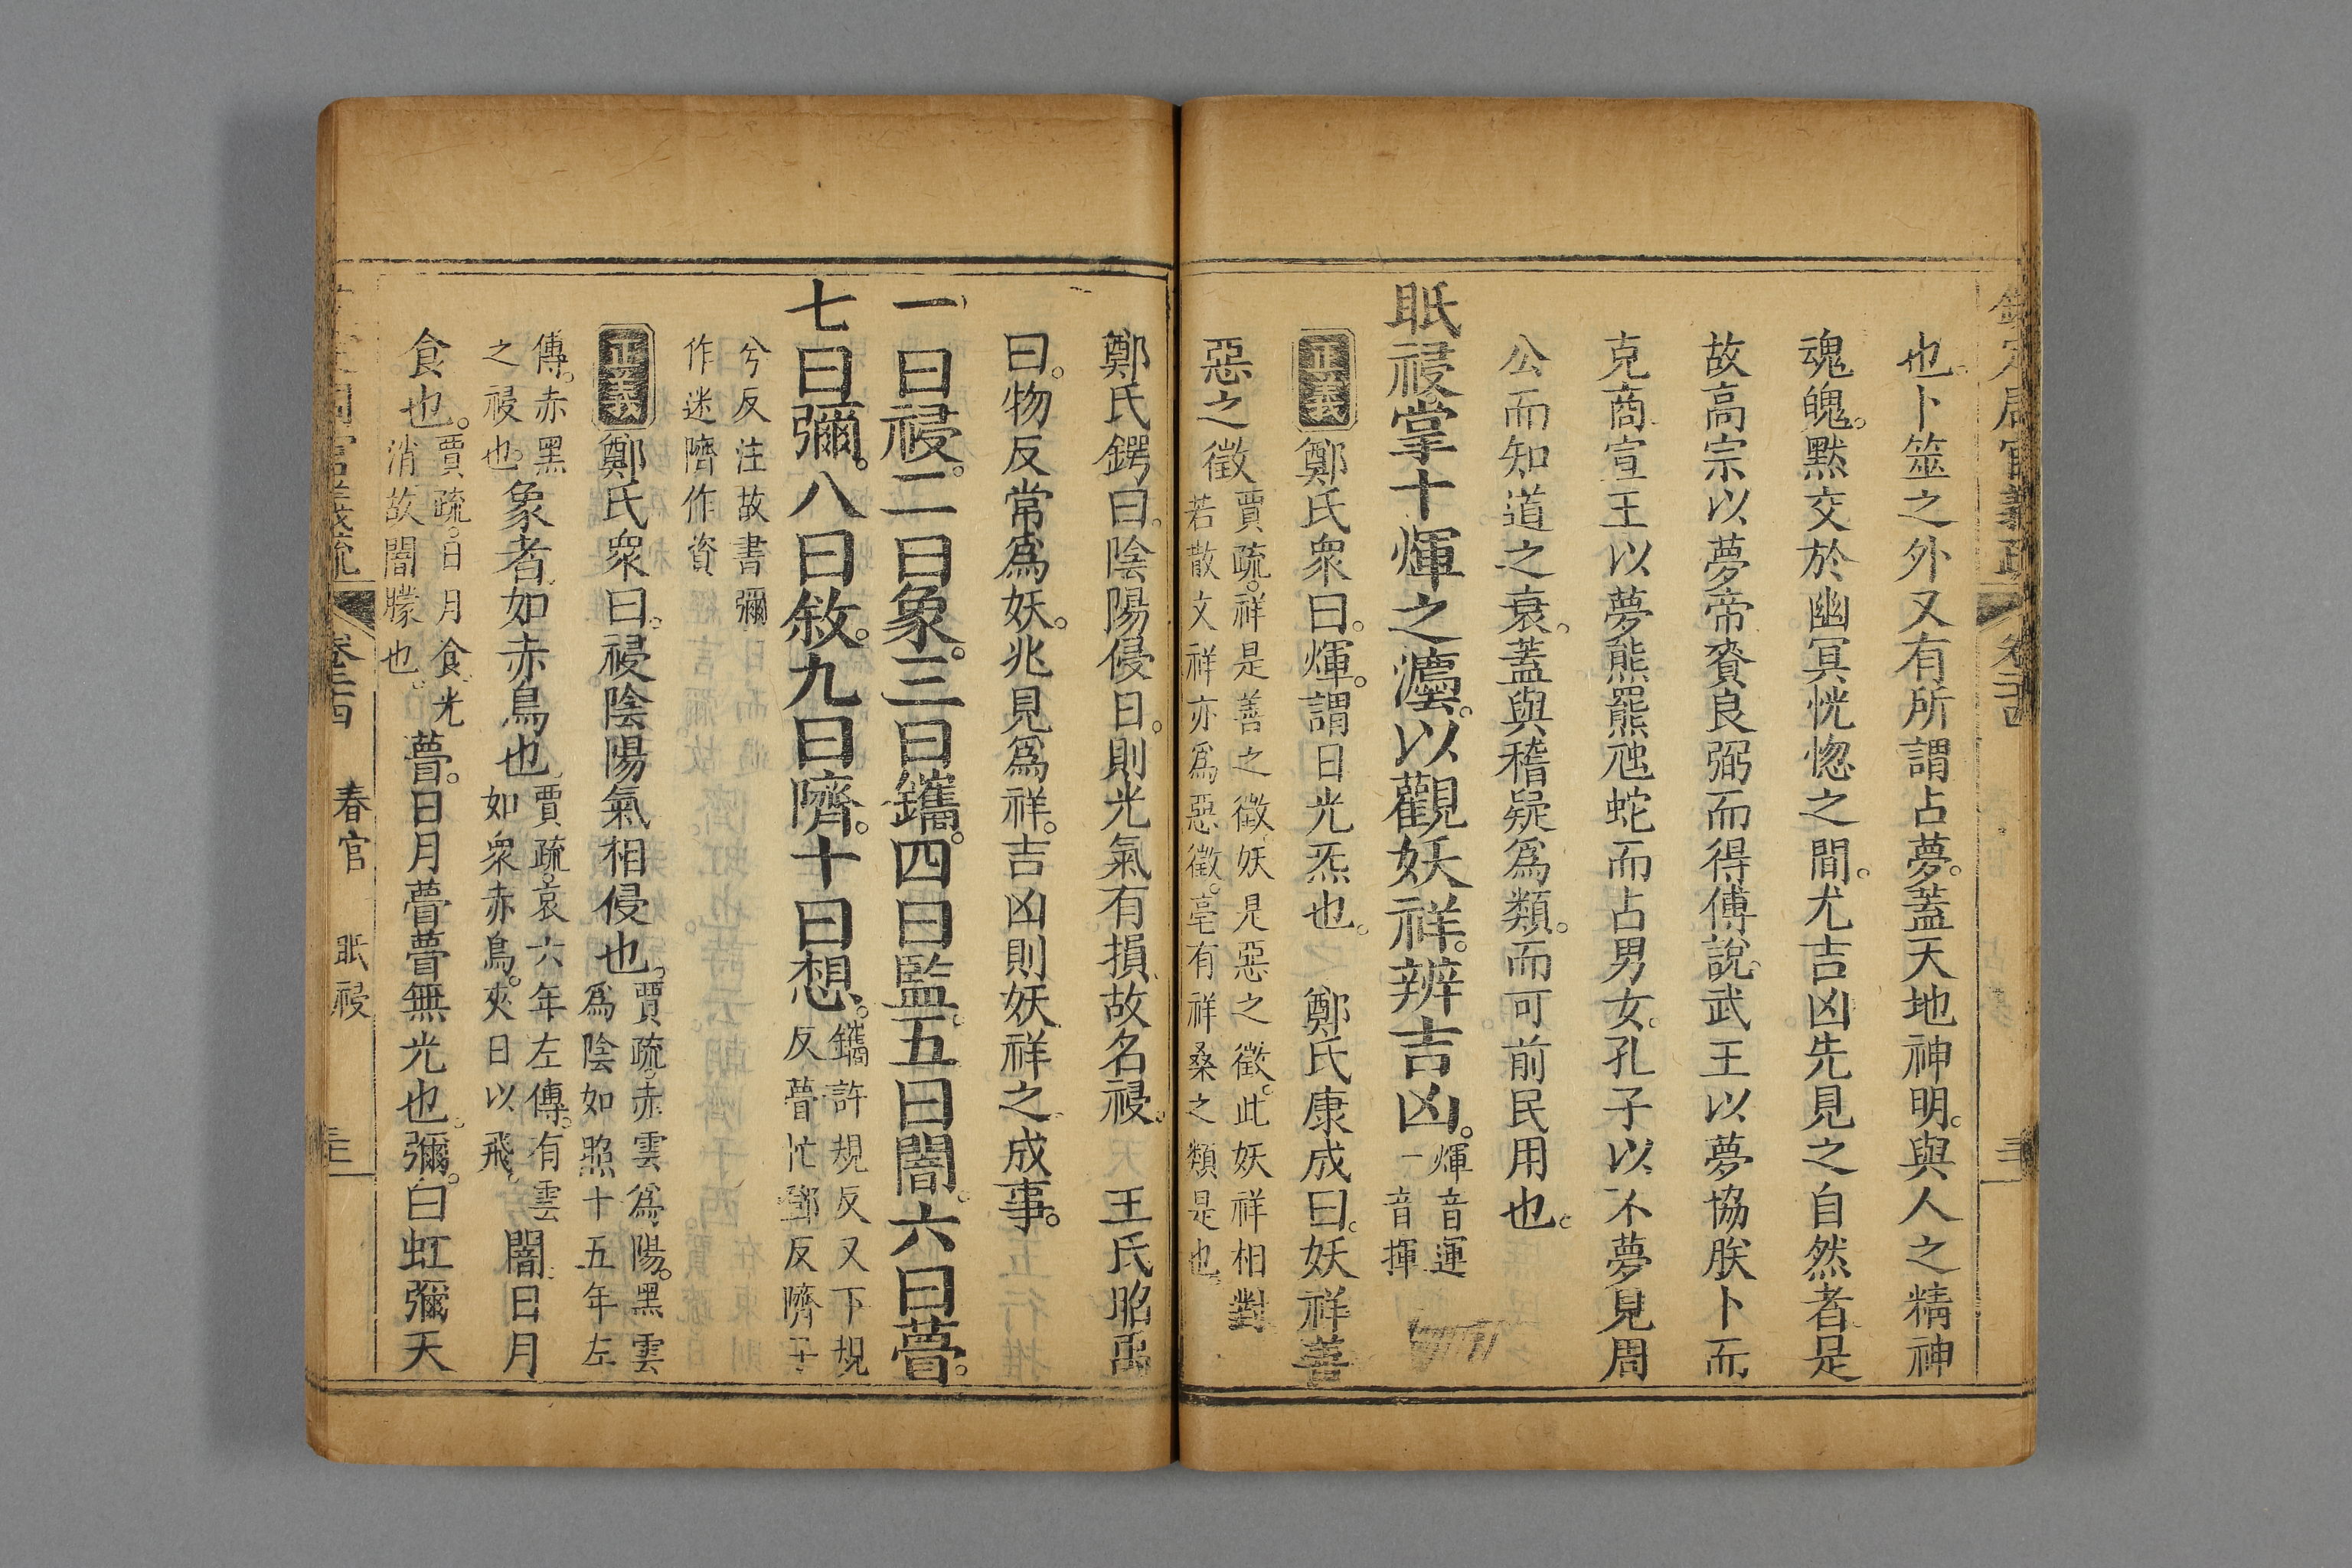 欽定周官義疏 卷二十四
也卜筮之外又有所謂占夢。蓋天地神明。與人之精神
魂魄。默交於幽冥恍惚之間。尤吉凶先見之自然者。是
故高宗以夢帝賚良弼而得傅說。武王以夢協朕卜而
克商。宣王以夢熊羆虺蛇而占男女。孔子以不夢見周
公而知道之衰。蓋與稽疑爲類。而可前民用也。
眡祲掌十煇之灋。以觀妖祥。辨吉凶。煇音運
一音揮
正義 鄭氏衆曰。煇。謂日光炁也。 鄭氏康成曰。妖祥善
惡之徵 賈疏。祥是善之徵。妖是惡之徵。此妖祥相對
若散文祥亦爲惡徵。亳有祥桑之類是也。
鄭氏鍔曰。陰陽侵日。則光氣有損。故名祲。 王氏昭禹
曰。物反常爲妖。兆見爲祥。吉凶則妖祥之成事。
一曰祲。二曰象。三曰鑴。四曰監。五曰闇。六曰瞢。
七曰彌。八曰敘。九曰隮。十曰想。鑴許規反又下規
反瞢忙鄧反隮子
兮反注故書彌
作迷隮作資
正義 鄭氏衆曰。祲陰陽氣相侵也。賈疏。赤雲爲陽。黑雲
爲陰如煦十五年左
傳。赤黑
之祲也。象者。如赤鳥也。賈疏。哀六年左傳。有雲
如衆赤鳥。夾日以飛。闇。日月
食也。賈疏。日月食。光
消故闇朦也。瞢。日月瞢瞢無光也。彌。白虹彌天
欽定周官義疏 卷二十四 春官 眡祲